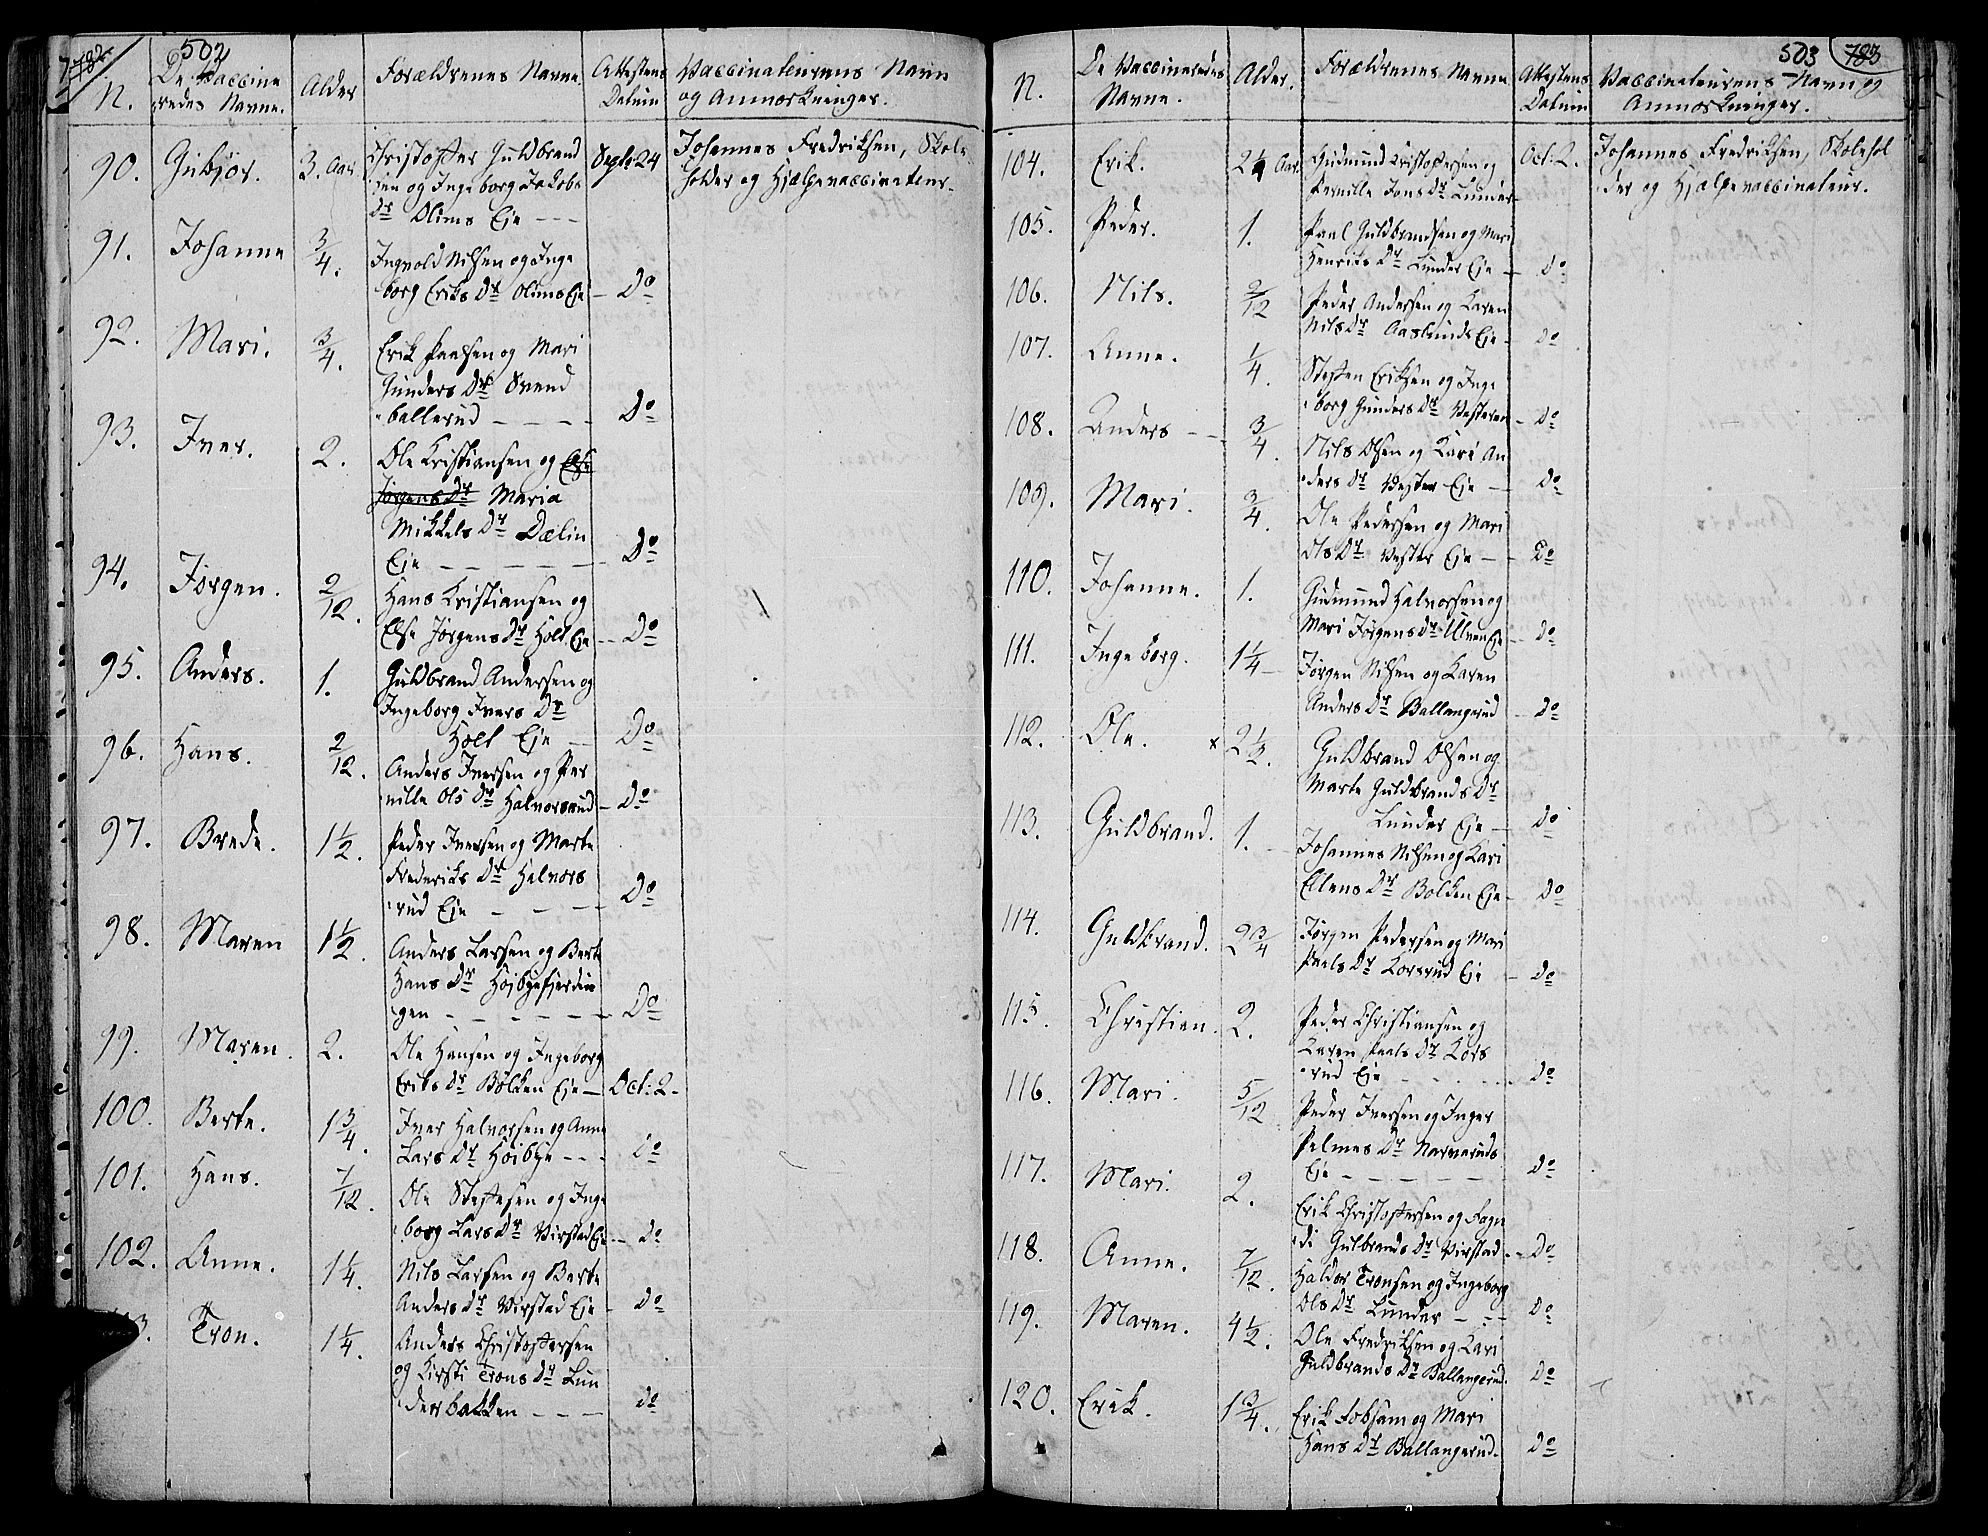 782 502
N. De Vaccine Alder Forældrenes Navne. Attestens Vaccinateurens Navn
redes Navne. Datum og Anmærkninger.
90. Gubjør. 3. Aar. Christoffer Guldbrand Septr 24 Johannes Fredriksen, Skole
sen og Ingeborg Jakobs holder og Hjælpevaccinateur.
Dr Olims Eje ---
91. Johanne 3/4. Ingvold Nilsen og Inge
borg Eriks Dr Olims Eje – Do
92. Mari. 3/4. Erik Paalsen og Mari
Gunders Dr Svend
ballerud – – – – Do
93. Iver. 2. Ole Kristiansen og Else
Jørgens Dr Maria
Mikkels Dr Dælin
Eje – – – – – – Do
94. Jørgen. 2/12. Hans Kristiansen og
Else Jørgens Dr Holt Eje -- Do
95. Anders. 1. Guldbrand Andersen og
Ingeborg Ivers Dr
Holt Eje – Do
96. Hans. 2/12. Anders Iversen og Per
nille Ols Dr Halvorsrud – Do
97. Brede. 1 1/2. Peder Iversen og Marte
Frederiks Dr Halvors
rud Eje – – – – Do
98. Maren 1 1/2. Anders Larsen og Berte
Hans Dr Høibyefjerdin
gen – – – – – – Do
99. Maren. 2. Ole Hansen og Ingeborg
Eriks Dr Bølken Eje – Oct: 2 -
100. Berte. 1 3/4. Iver Halvorsen og Anne
Lars Dr Høibye - - - do
101. Hans. 7/12. Ole Steffesen og Inge
borg Lars Dr Virstad Eje -- do
102. Anne. 1 1/4. Nils Larsen og Berte
Anders Dr Virstad Eje – do
3. Tron. 1 1/4. Anders Christoffersen
og Kirsti Trons Dr Lun
derbakken – – – do
503 783
N. De Vaccineredes Alder. Forældrenes Navne Attestens Vaccinateurens Navn og
Navne. Datum Anmærkninger.
104. Erik. 2 1/4 Aar. Gudmund Cristoffersen og Oct: 2. Johannes Fredriksen, Skolehol
Pernille Jons Dr Lunder der og Hjælpevaccinateur.
105. Peder. 1. Paal Guldbrandsen og Mari
Henriks Dr Lunder Eje – do
106. Nils. 2/12 Peder Andersen og Karen
Nils Dr Aaslunds Eje – do
107. Anne. 1/4. Steffen Eriksen og Inge
borg Gunders Dr Vesteren – do
108. Anders -- 3/4. Nils Olsen og Kari An
ders Dr Vester Eje – Do
109. Mari. 3/4. Ole Pedersen og Mari
Ols Dr Vester Eje – – Do
110. Johanne. 1. Gudmund Halvorsen og
Mari Jørgens Dr Ulven Eje – do
111. Ingeborg. 1 1/4 – Jørgen Nilsen og Karen
Anders Dr Ballangerud – do
112. Ole. x 2 1/2. Guldbrand Olsen og
Marte Guldbrands Dr
Lunder Eje – do
113. Guldbrand. 1. Johannes Nilsen og Kari
Ellens Dr Bolken Eje – do
114. Guldbrand. 2 3/4 Jørgen Pedersen og Mari
Paals Dr Korsrud Eje – do
115. Christian. 2. Peder Christiansen og
Karen Paals Dr Kors
rud Eje – – – – do
116. Mari. 5/12 Peder Iversen og Inger
Palmes Dr Narveruds
Eje – – – – – – do
117. Mari. 2. Erik Christoffersen og Fagn
di Gulbrands Dr Virstad. - Do
118. Anne. 7/12. Haldor Tronsen og Ingeborg
Ols Dr Lunder – – – do
119. Maren. 4 1/2. Ole Fredriksen og Kari
Guldbrands Dr Ballangerud. do
120. Erik. 1 3/4. Erik Fobsam og Mari
Hans Dr Ballangerud. do